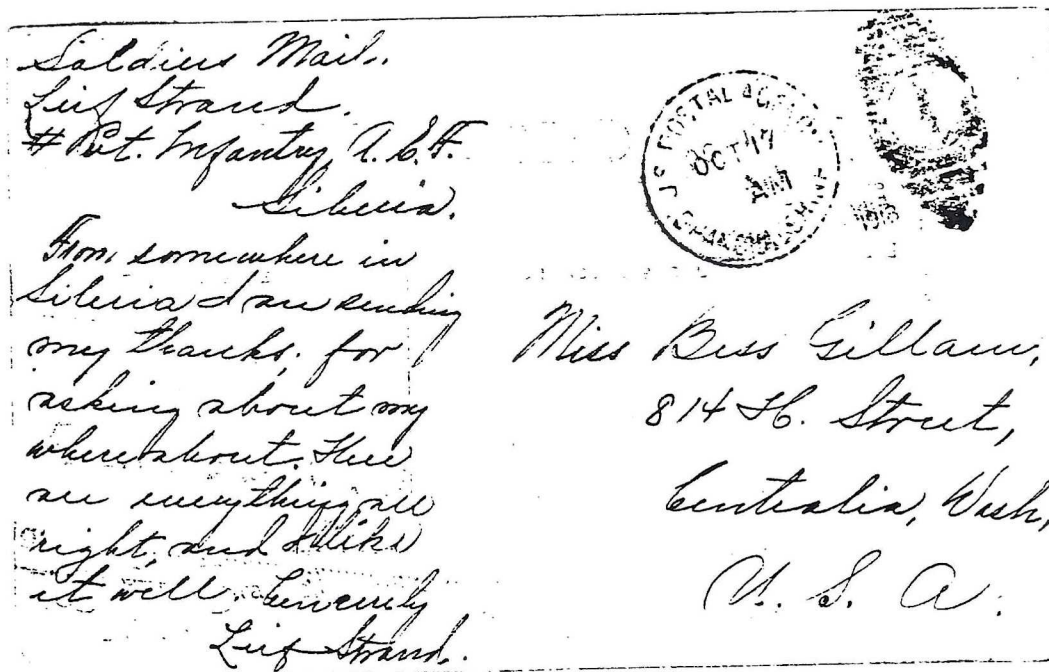 Soldiers Mail.
Leif Strand.
# Pvt. Infantry, A. E. F.
Siberia.
From somewhere in
Siberia I am sending
my thanks, for
asking about my
where about. Here
are everything all
right, and I like
it well. Cincerely
Leif Strand.
U.S. POSTAL AGENCY
OCT 17
AM
SHANGHAI, CHINA
1918
Miss Bess Gillam,
814 H. Street,
Centralia, Wash,
U. S. A.